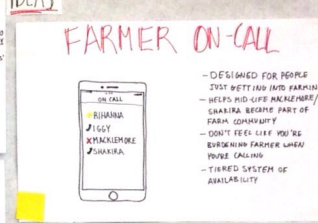 IDEAS
FARMER ON-CALL
ON CALL
RIHANNA
IGGY
MACKLEMORE
SHAKIRA
- DESIGNED FOR PEOPLE
JUST GETTING INTO FARMIN
- HELPS MID-LIFE MACKLEMORE/
SHAKIRA BECOME PART OF
FARM COMMUNITY
- DON'T FEEL LIKE YOU'RE
BURDENING FARMER WHEN
YOU'RE CALLING
- TIERED SYSTEM OF
AVAILABILITY